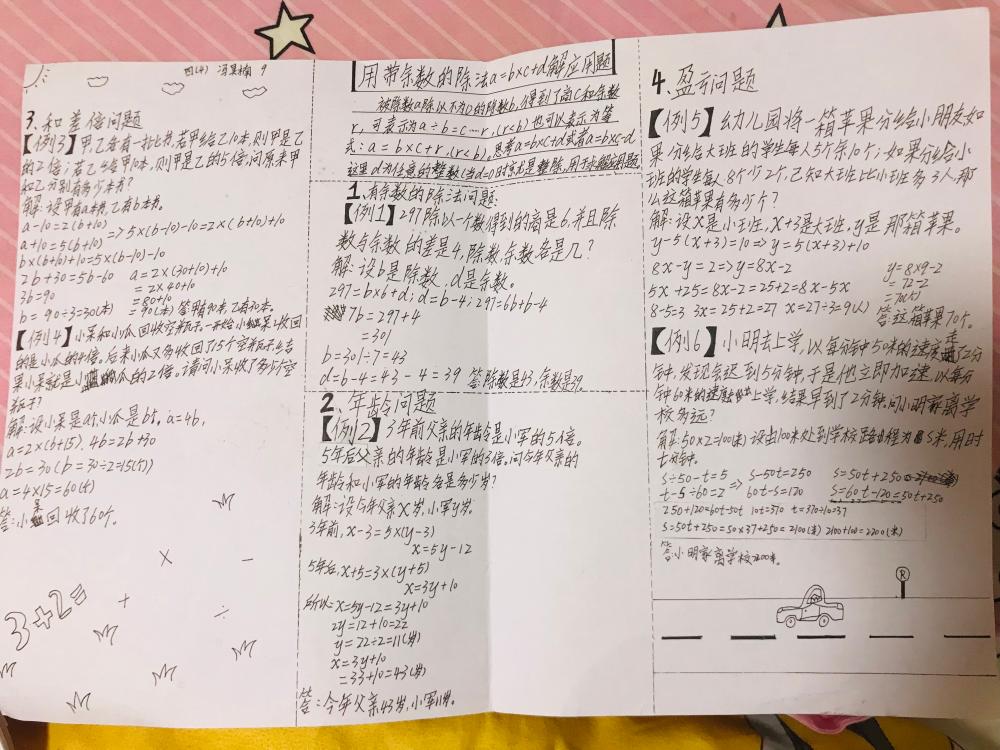 四(4) 冯 楠 9
3、和差倍问题
【例3】甲乙各有一批书,若甲给乙10本,则甲是乙
的2倍;若乙给甲10本,则甲是乙的5倍,问原来甲
和乙分别有多少本书?
解:设甲有a本书,乙有b本书。
a-10=2(b+10)
a+10=5(b+10) => 5×(b-10)-10=2×(b+10)+10
b×(b+10)+10=5×(b-10)-10
2b+30=5b-60 a=2×(30+10)+10
3b=90 =2×40+10
=80+10
b=90÷3=30(本) =90(本) 答:甲有90本,乙有30本。
【例4】小呆和小瓜回收空瓶示.一开始小呆收回
的是小瓜的4倍。后来小瓜又多收回了15个空瓶示.结
果小呆就是小瓜的2倍。请问小呆收了多少空
瓶示?
解:设小呆是a个,小瓜是b个。a=4b,
a=2×(b+15). 4b=2b+30
2b=30(b=30÷2=15(个))
a=4×15=60(个)
答:小呆回收了60个。
3+2=
+ × - ÷
用带余数的除法a=b×c+d解应用题
被除数a除以不为0的除数b,得到了商c和余数
r,可表示为a÷b=c…r,(r<b)也可以表示为等
式:a=b×c+r,(r<b)。思考a=b×c+d或者a=b×c-d
这里d为任意的整数(当d=0时式是整除,用于求解应用题
1.有余数的除法问题:
【例1】297除以一个数得到的商是6,并且除
数与余数的差是4,除数余数各是几?
解:设b是除数,d是余数。
297=b×6+d;d=b-4;297=6b+b-4
7b=297+4
=301
b=301÷7=43
d=b-4=43-4=39 答:除数是43,余数是39.
2、年龄问题
【例2】3年前父亲的年龄是小军的5倍。
5年后父亲的年龄是小军的3倍。问今年父亲的
年龄和小军的年龄各是多少岁?
解:设今年父亲x岁,小军y岁.
3年前,x-3=5×(y-3)
x=5y-12
5年后,x+5=3×(y+5)
x=3y+10
所以:x=5y-12=3y+10
2y=12+10=22
y=22÷2=11(岁)
x=3y+10
=33+10=43(岁)
答:今年父亲43岁,小军11岁。
4.盈亏问题
【例5】幼儿园将一箱苹果分给小朋友如
果分给大班的学生每人5个余10个;如果分给小
班的学生每人8个少2个,已知大班比小班多3人,那
么这箱苹果有多少个?
解:设x是小班班,x+3是大班班,y是那箱苹果。
y-5(x+3)=10=>y=5(x+3)+10
8x-y=2=>y=8x-2 y=8×9-2
5x+25=8x-2=25+2=8x-5x =72-2
8-5=3 3x=25+2=27 x=27÷3=9(人) =70(个)
答:这箱苹果70个。
【例6】小明去上学,以每分钟50米的速度走了2分
钟,发现会迟到5分钟,于是他立即加速,以每分
钟60米的速度去上学,结果早到了2分钟。问小明家离学
校多远?
解:50×2=100(米) 设由100米处到学校路程为S米,用时
t分钟。
s÷50-t=5 s-50t=250 s=50t+250
t-s÷60=2 => 60t-s=120 s=60t-120=50t+250
250+120=60t-50t 10t=370 t=370÷10=37
s=50t+250=50×37+250=2100(米) 2100+100=2200(米)
答:小明家离学校2200米。
R